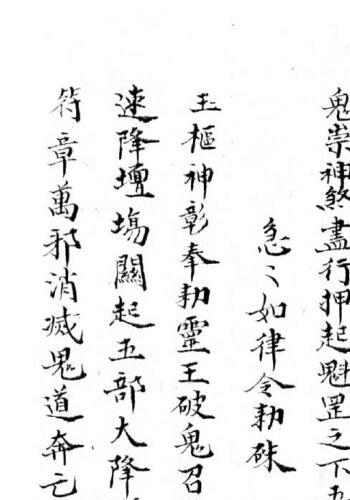 鬼祟神煞盡行押起魁罡之下
急〻如律令勅硃
玉樞神彰奉勅靈王破鬼召
速降壇塲關起五部大降
符章萬邪消滅鬼道奔亡